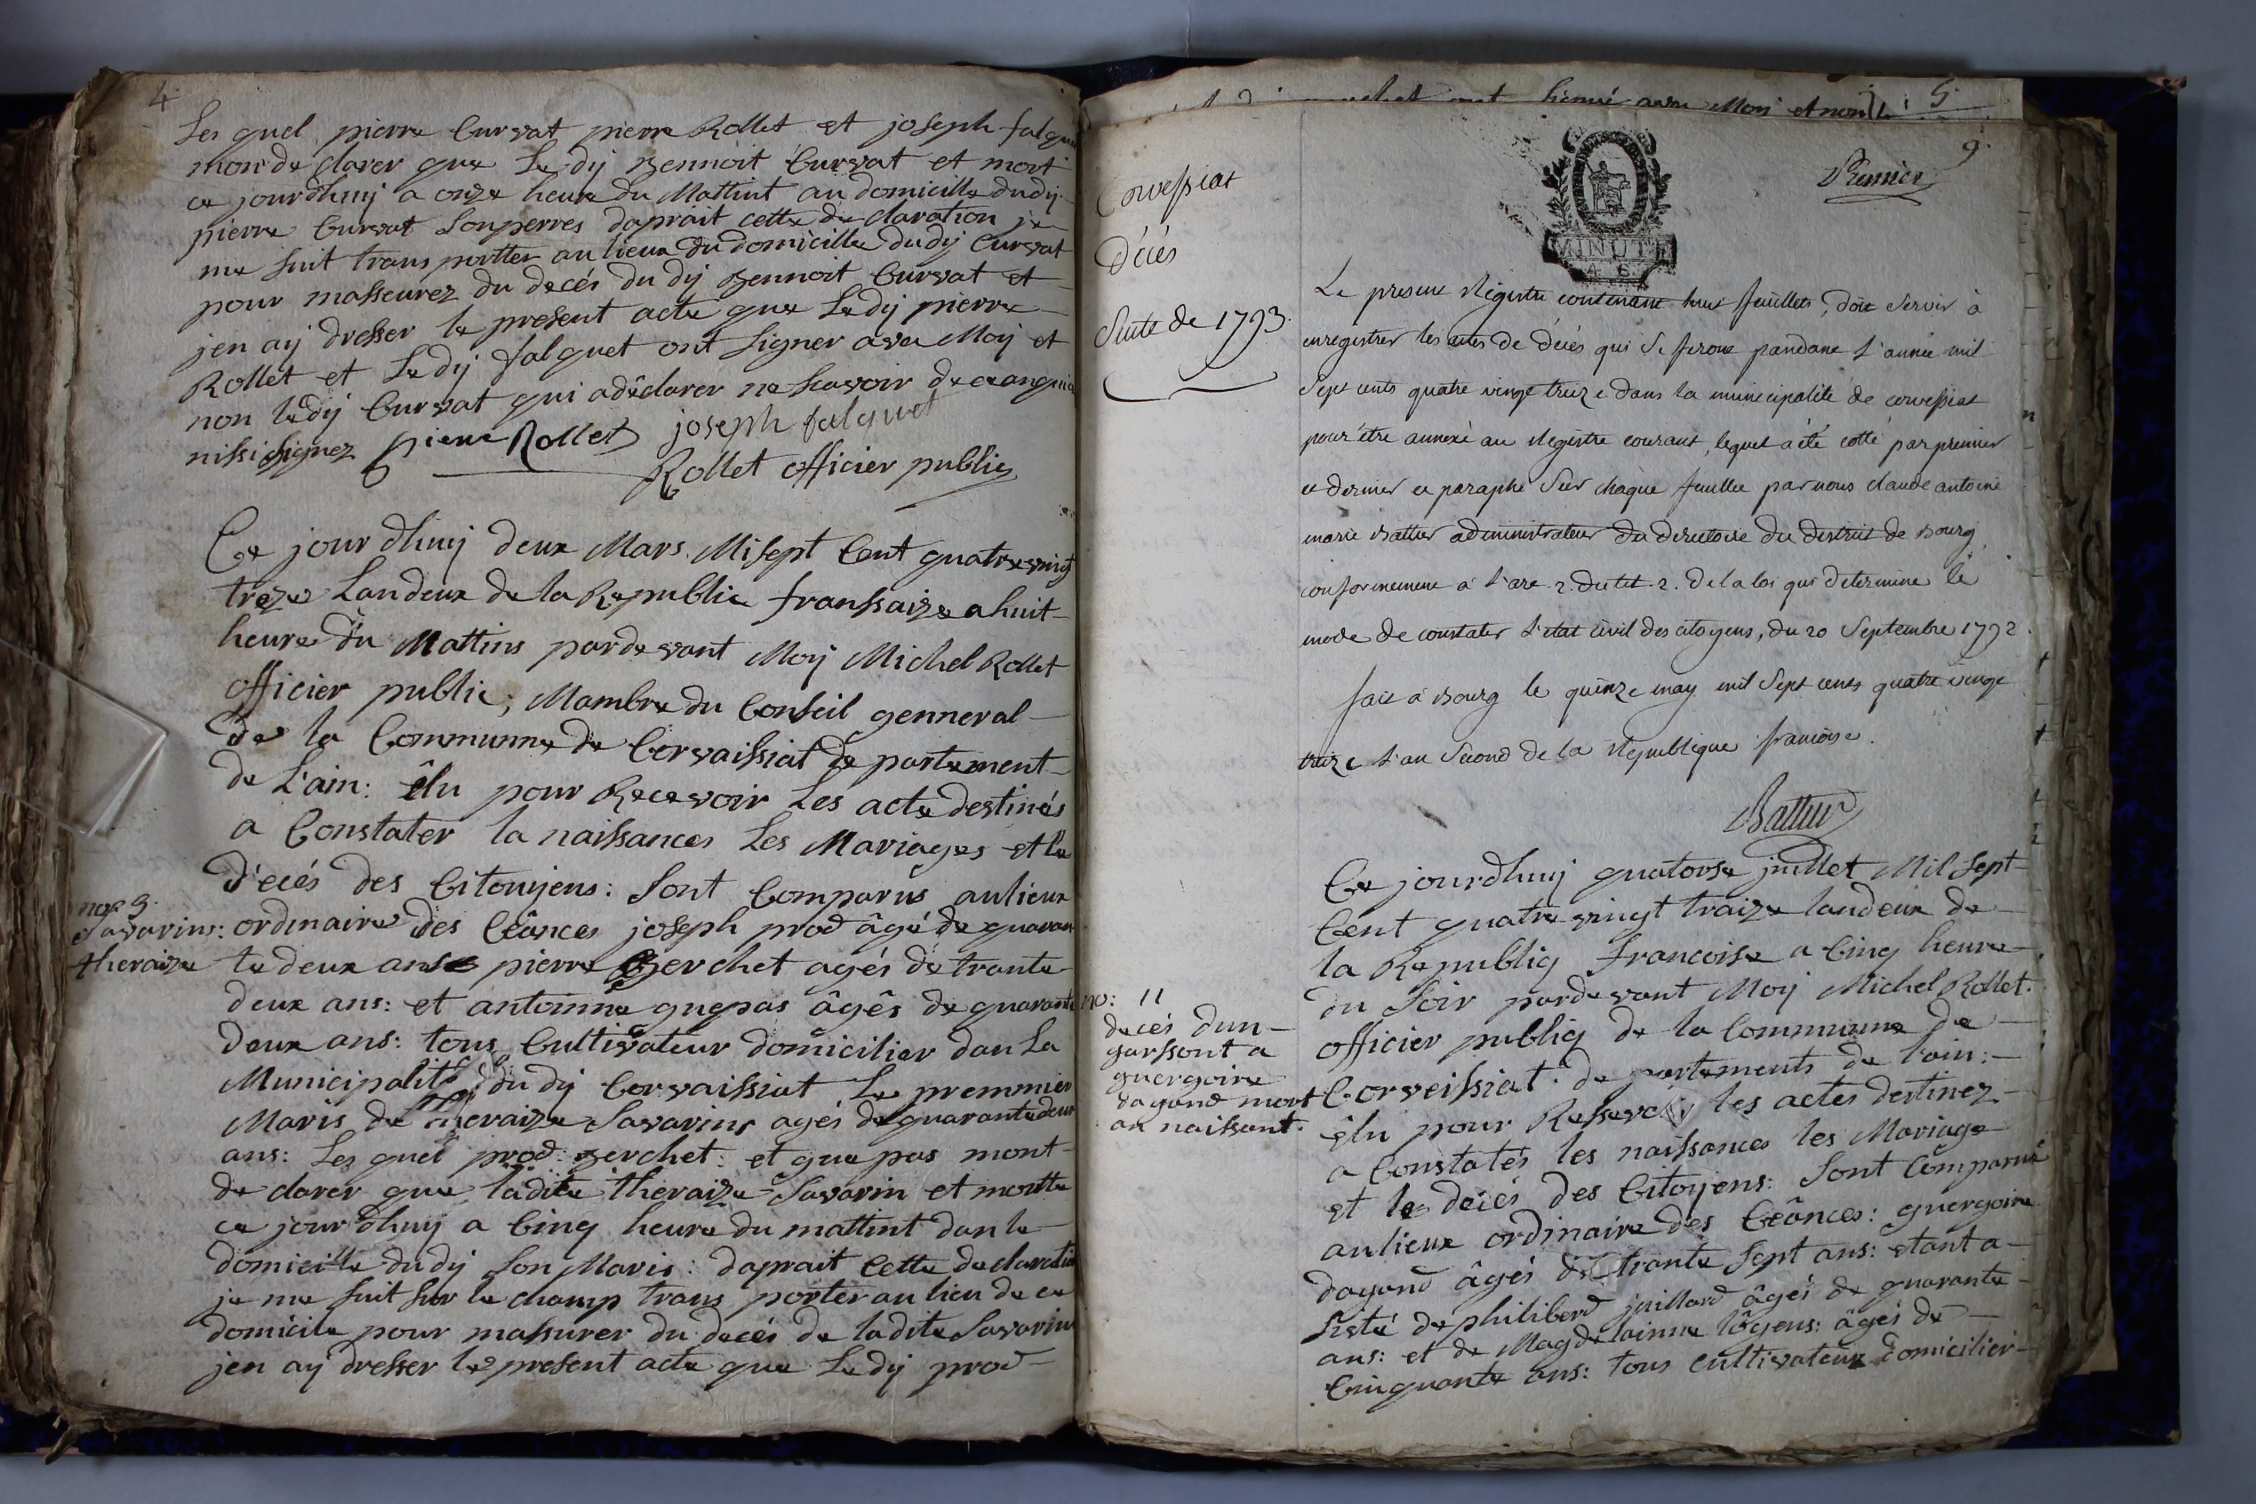 4
Les quel pierre Curvat pierre Rollet et joseph falquet
mon de clarer que Le dij Bennoit Curvat et mort
ce jourdhuij a onze heure du Mattint au domicille dudij
pierre Curvat Son perres daprait cette de claration je
me suit transportter au lieux du domicille dudij Curvat
pour masseurez du decés du dij Bennoit Curvat et
jen aij dresser le present acte que Ledij pierre
Rollet et Le dij falquet ont Signer avec Moij et
non ledij Curvat qui adêclarer ne Scavoir de ce anquis
nissi Signez pierre Rollet joseph falquet
Rollet officier public
Ce jour dhuij deux Mars Misept Cent quatrevingt
treze Landeux de la Republic franssaize a huit
heure du Mattins pardevant Moij Michel Rollet
officier public; Mambre du Conseil genneral
de la Communne de Corvaissiat de partement
de L'ain: êlu pour Recevoir Les acte destinés
a Constater la naissances Les Mariages et Le
d'ecés des Citouijens: Sont Comparus aulieux
no 9.
Savarins:
theraize
ordinaire des Ceânces joseph prod âgé de quaran
te deux ans pierre Berchet agés de trante
deux ans: et antoinne guepas âgês de quarante
deux ans: tous Cultivateur domicilier dan La
Municipalité du dij Corvaissiat Le premmier
Maris de theraize Savarins agés de quarantedeux
ans: Les quel prod: Berchet: et gue pas mont
de clarer que ladite theraize Savarin et mortte
ce jour dhuij a Cinq heure du mattint dan le
domicille dudij Son Maris: daprait Cette declaration
je me suit Sur le champ trans porter au lieu de ce
domicile pour massurer du decés de ladite Savarins
jen aij dresser le present acte que Ledij prod
5
9.
Premier
Corvessiat
décés
Suite de 1793.
MINUTE
Le present Régistre contenant huit feuillets, doit Servir à
enregistrer les actes de décés qui Se feront pandant l'année mil
Sept cents quatre vingt treize dans la municipalité de corvessiat
pour être annexé au Régistre courant, lequel a été cotté par premier
et dernier et paraphé Sur chaque feuillet par nous claude antoine
marie Battur administrateur du directoire du district de Bourg
conformement à l'art. 2. du tit. 2. de la loi qui determine le
mode de constater l'etat civil des citoyens, du 20 Septembre 1792.
fait à Bourg le quinze may mil Sept cents quatre vingt
treize l'an Second de la République françoise.
Battur
Ce jourdhuij quatorse juillet Mil Sept
Cent quatre vingt traize landeux de
la Republiq francoise a Cinq heure
du Soir pardevant Moij Michel Rollet.
no: 11
decés dun
garssont a
guergoire
dagand mort
an naissant.
officier publiq de la Commune de
Corveissiat. de partements de l'ain:
êlu pour Ressevoir les actes destinez
a Constatés les naissances les Mariage
et les decés des Citoijens: Sont Comparut
aulieux ordinaire des Ceânces: guergoire
dagand âgés de trante Sept ans: etant a
Sisté de philiberd juillard âgés de quarante
ans: et de Magdelainne lôgens: âgés de
Cinquante ans: tous cultivateur domicilier